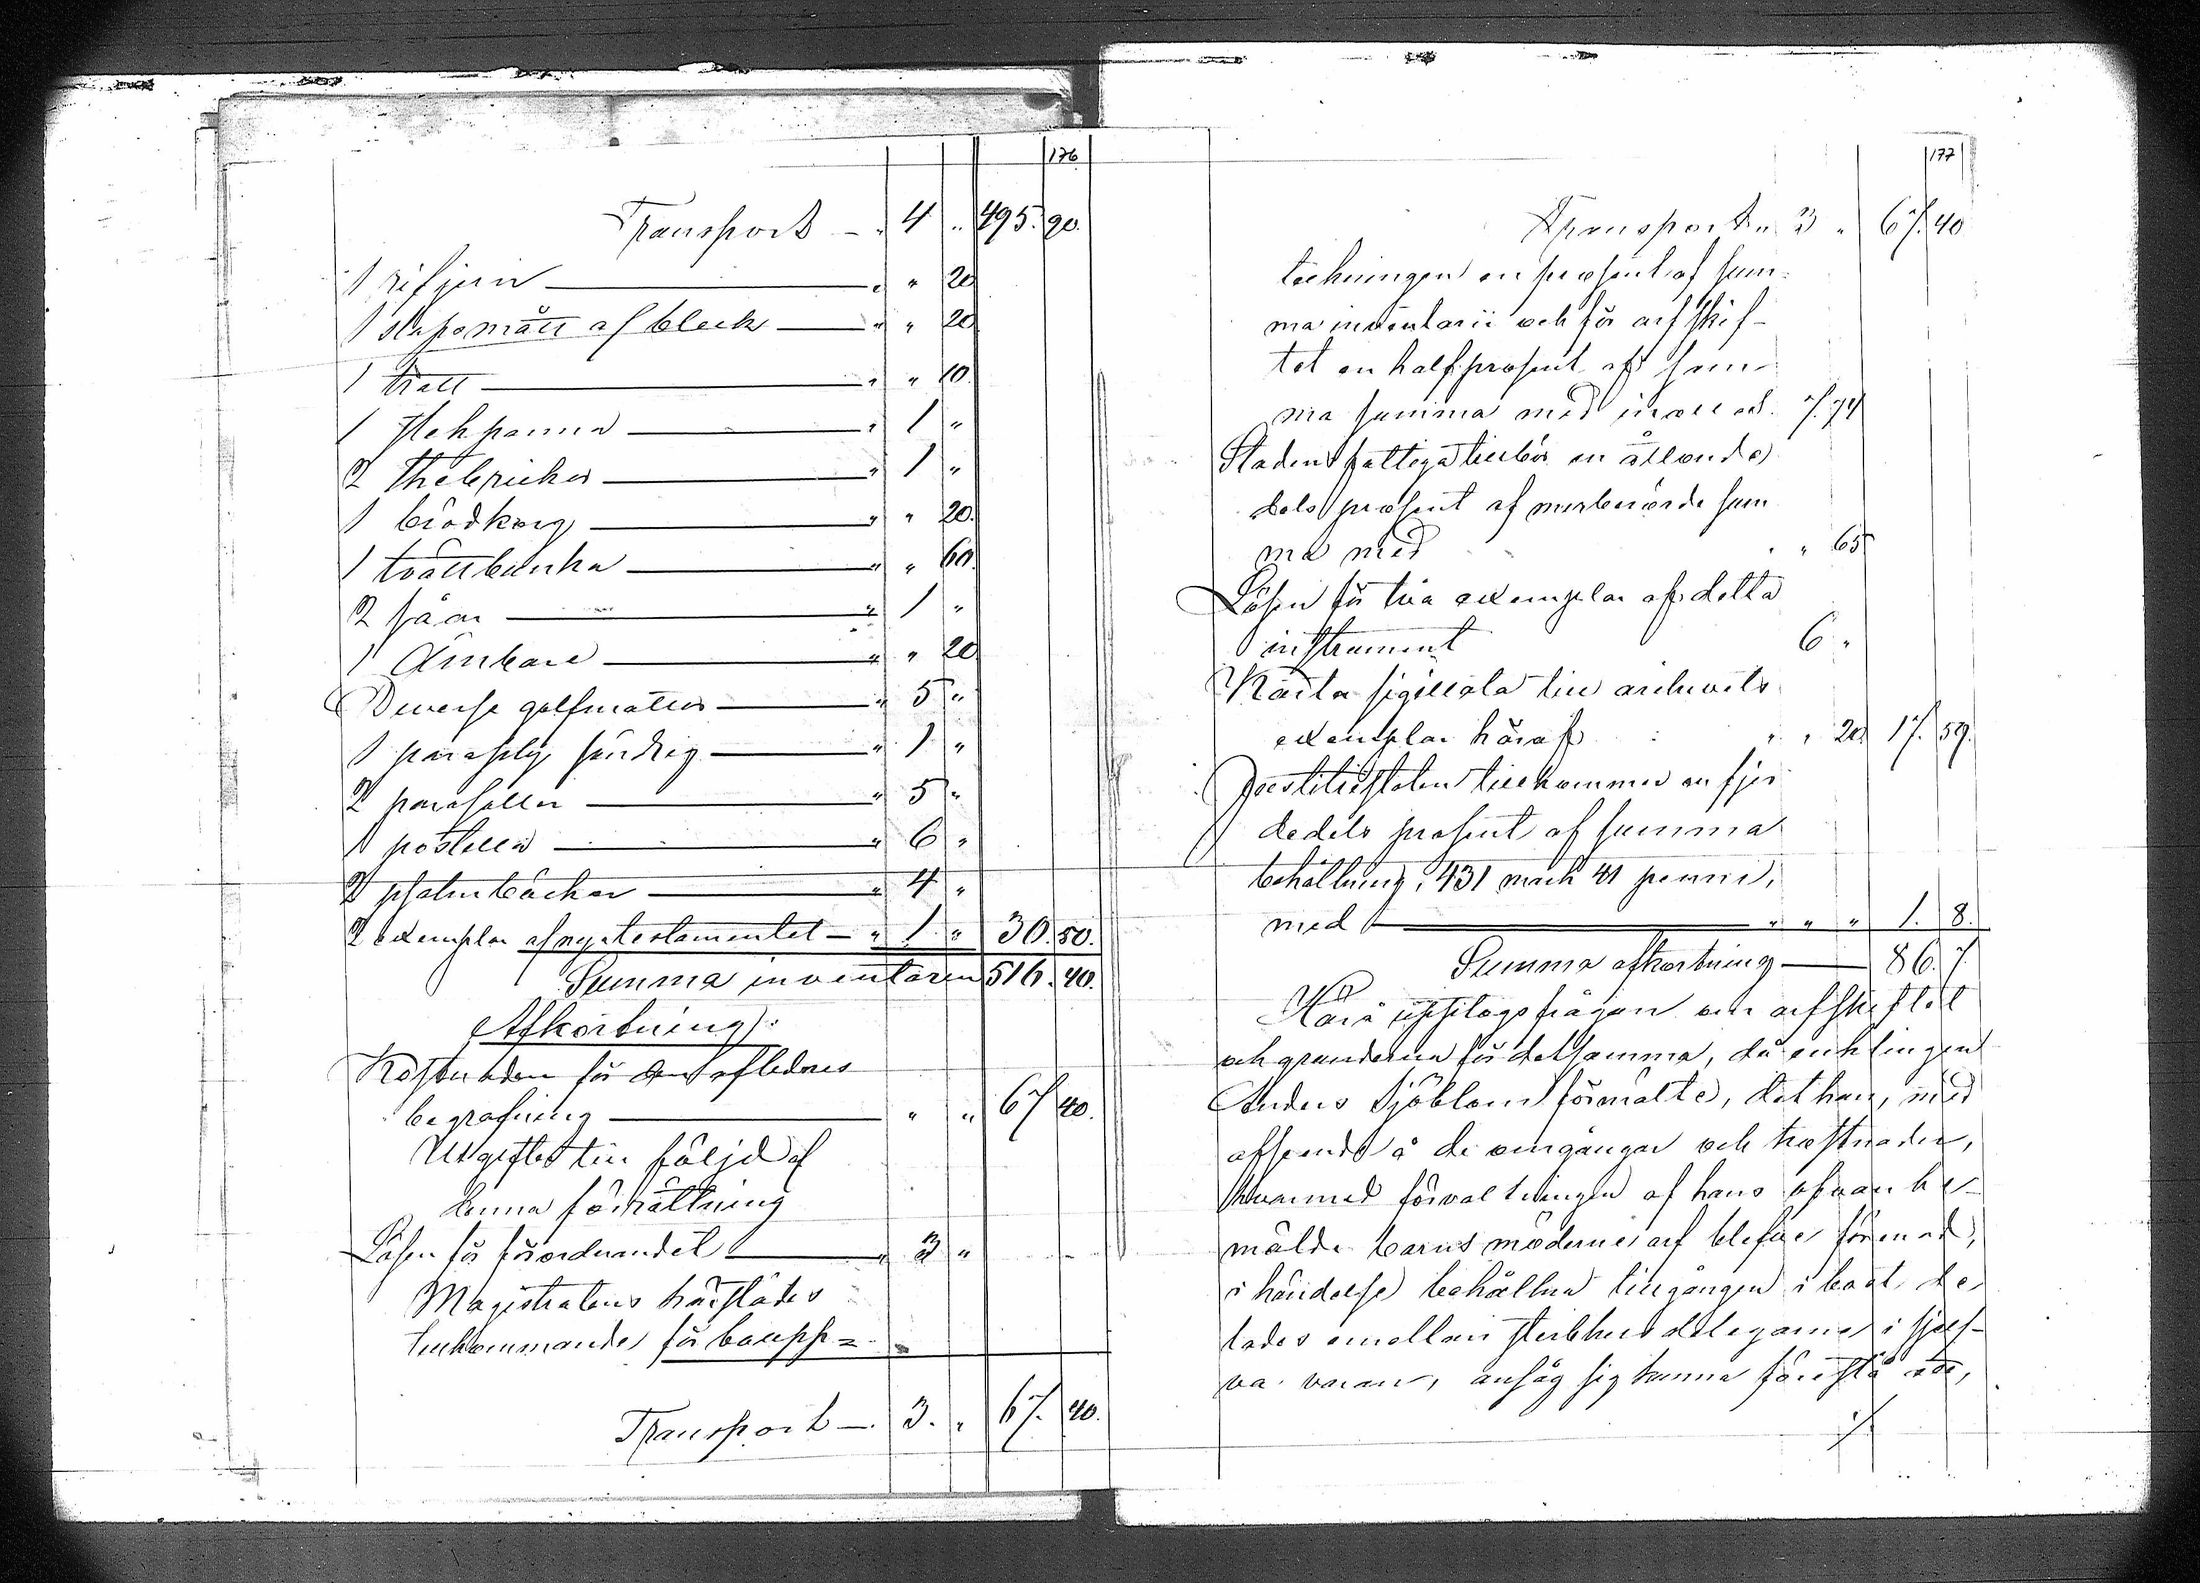 176
Transport — " 4 " 495. 90.
1 rifjern " " 20
1 stopsmått af bleck " " 20
1 tratt " " 10.
1 stekpanna " 1 "
2 thebrickor " 1 "
1 brödkorg " " 20.
1 tvättbunka " " 60.
2 såar " 1 "
1 ämbare " " 20
Diverse golfmattor " 5 "
1 paraply söndrig " 1 "
2 parasoller " 5 "
1 postilla " 6 "
2 psalmböcker " 4 "
2 exemplar af nya testamentet — " 1 " 30. 50.
Summa inventarii 516. 40.
Afkortning:
Kostnaden för den aflednes
begrafning " " 67 40.
Utgifter till följd af
denna förrättning
Lösen för förordnandet " 3 "
Magistratens härstädes
tillkommande för boupp=
Transport — 3. " 67. 40.
177
Transport " 3 " 67. 40
teckningen en prosent af sum-
ma inventarii och för arfskif-
tet en half prosent af sam-
ma summa med 7. 74
Stadens fattiga tillkör en åttonde
dels prosent af merberörde sum
ma med " " 65
Lösen för två exemplar af detta
instrument 6 "
Karta sigillata till archivets
exemplar häraf " " 20. 17. 59.
Justitiestaten tillkommer en fjer
dedels prosent af summa
behållning, 431 mark 41 penni,
med " " " 1. 8.
Summa afkortning 86. 7
Härå upptogs frågan om arfskiftet
och grunderna för detsamma, då enklingen
Anders Sjöblom förmälte, det han, med
afseende å de omgångar och kostnader,
hvarmed förvaltningen af hans ofvan be-
mälde barns möderne arf blefve förenad,
i händelse behållna tillgången i boet de-
lades emellan sterbhusdelegarne i sjelf-
va varan, ansåg sig kunna föreslå att,
./.